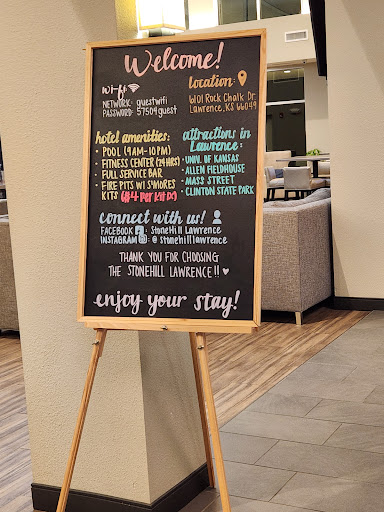 Welcome!
wi-fi
NETWORK: guestwifi
PASSWORD: 57504guest
location:
6101 Rock Chalk Dr.
Lawrence, KS 66049
hotel amenities:
• POOL (9AM-10PM)
• FITNESS CENTER (24HRS)
• FULL SERVICE BAR
• FIRE PITS W/ S'MORES
KITS ($4 PER KIT)
attractions in
Lawrence:
• UNIV. OF KANSAS
• ALLEN FIELDHOUSE
• MASS STREET
• CLINTON STATE PARK
connect with us!
FACEBOOK: StoneHill Lawrence
INSTAGRAM: @stonehilllawrence
THANK YOU FOR CHOOSING
THE STONEHILL LAWRENCE!! ♥
enjoy your stay!